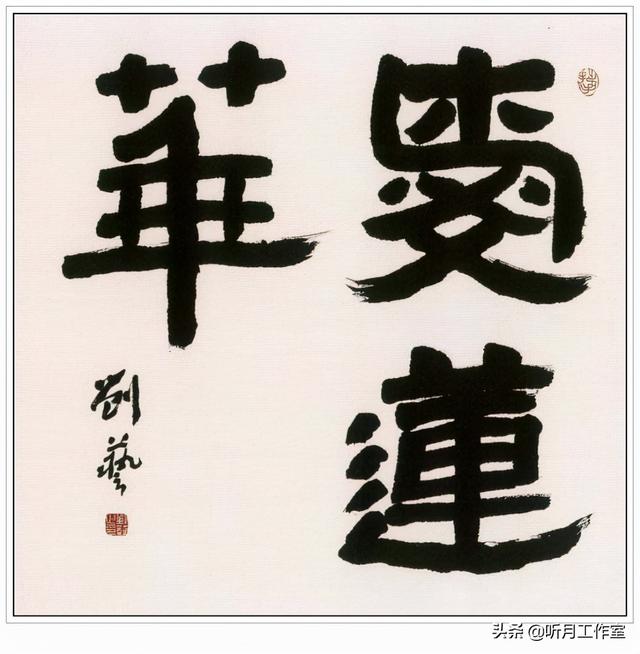 愛蓮
華
劉藝
头条 @听月工作室